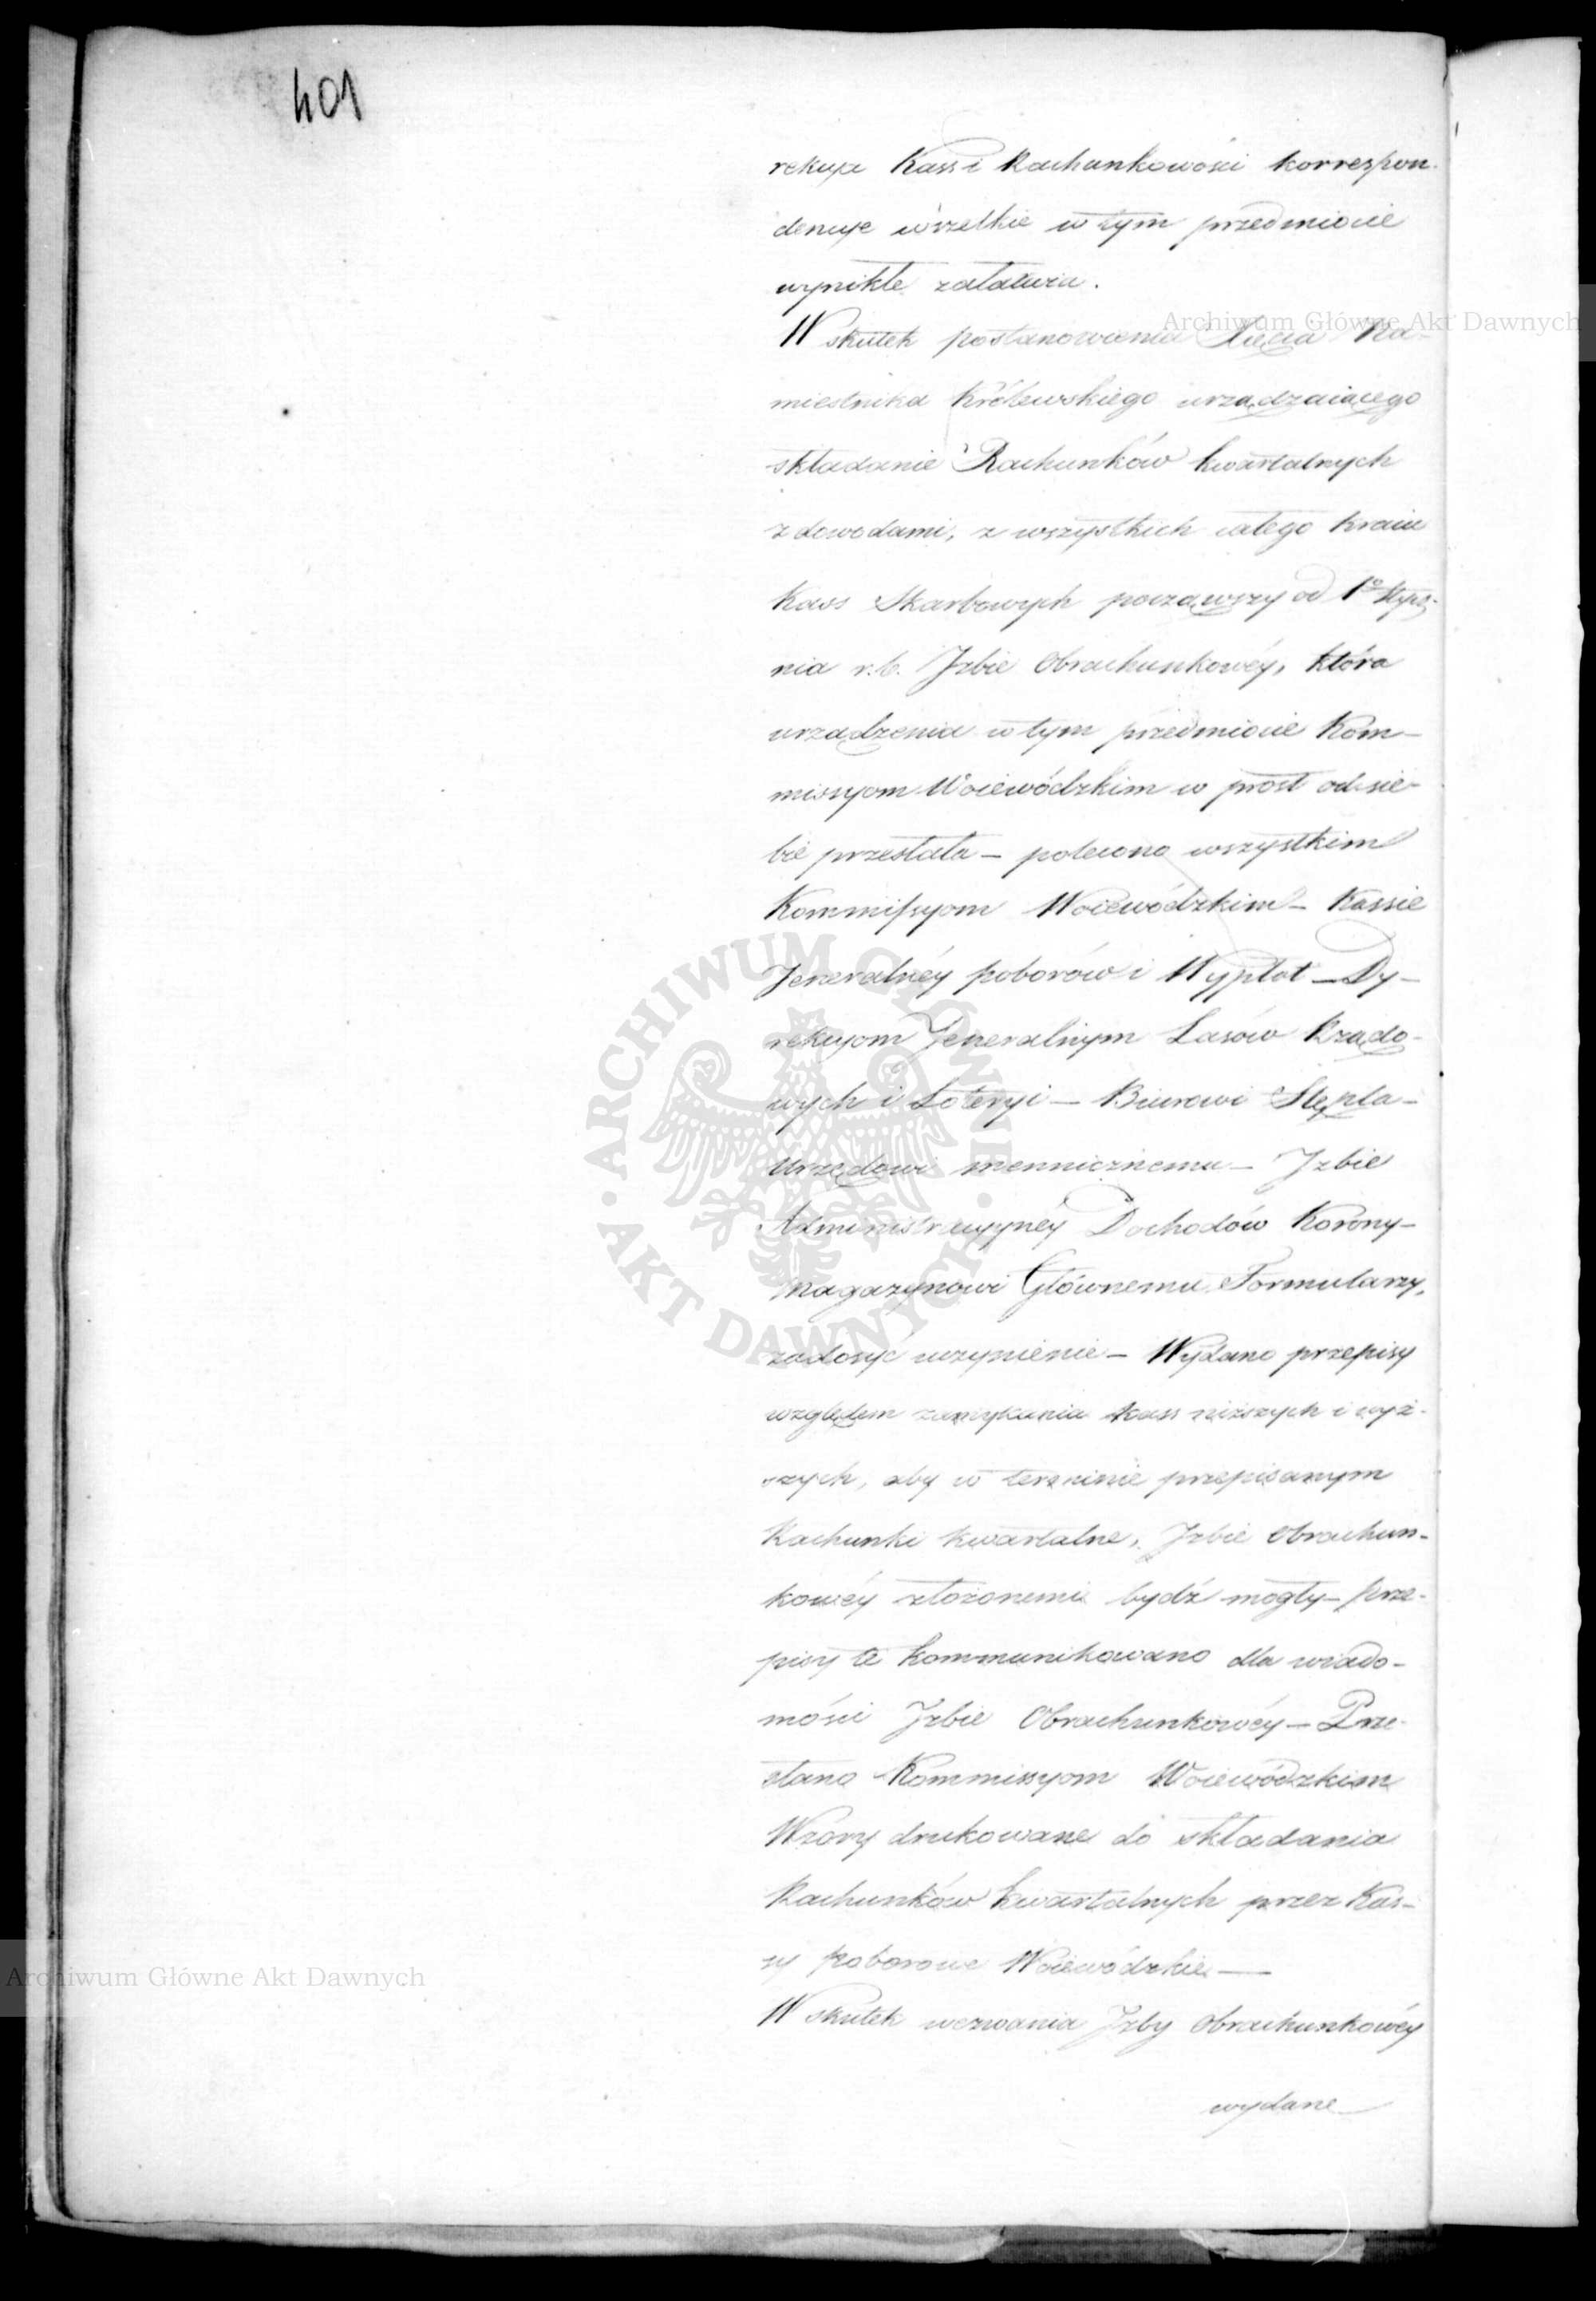 401
rekcya Kass i Rachunkowości korrespon-
dencye wszelkie w tym przedmiocie
wynikłe załatwia.
W skutek postanowienia Xięcia Na-
miestnika Królewskiego urządzaiącego
składanie Rachunków kwartalnych
z dowodami, z wszystkich całego Kraiu
Kass Skarbowych począwszy od 1º Stycz-
nia r.b. Izbie Obrachunkowéy, która
urządzenia w tym przedmiocie Kom-
missyom Woiewódzkim w prost od sie-
bie przesłała – polecono wszystkim
Kommissyom Woiewódzkim – Kassie
Jeneralnéy poborów i Wypłat – Dy-
rekcyom Jeneralnym Lasów Rządo-
wych i Loteryi – Biurowi Stępla –
Urzędowi menniczнemu – Izbie
Administracyynéy Dochodów Korony –
Magazynowi Głównemu Formularzy,
zadosyć uczynienie – Wydano przepisy
względem zamykania kass niższych i wyż-
szych, aby w terminie przepisanym
Rachunki kwartalne, Izbie Obrachun-
kowéy złożonemi bydź mogły – prze-
pisy te kommunikowano dla wiado-
mości Izbie Obrachunkowéy – Prze-
słano Kommissyom Woiewódzkim
Wzory drukowane do składania
Rachunków kwartalnych przez Kas-
sy poborowe Woiewódzkie —
W skutek wezwania Izby Obrachunkowéy
wydane
Archiwum Główne Akt Dawnych
ARCHIWUM GŁÓWNE · AKT DAWNYCH ·
Archiwum Główne Akt Dawnych